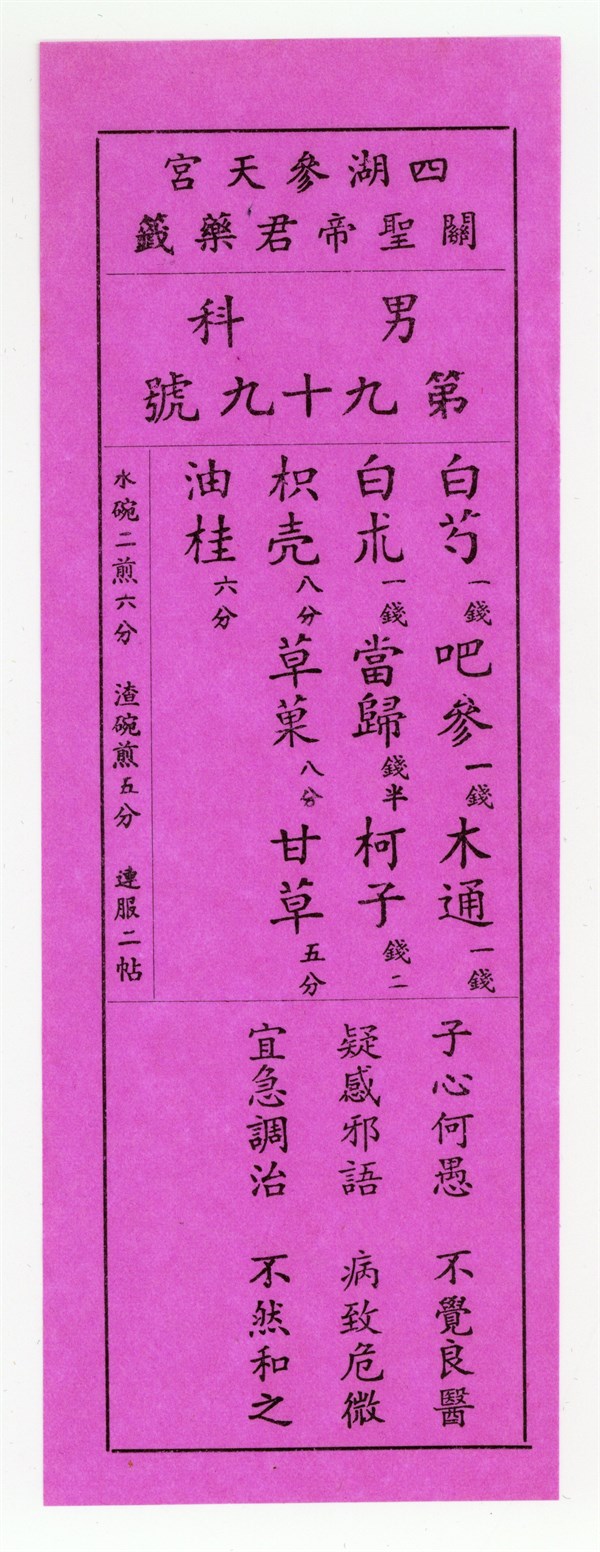 四湖參天宮
關聖帝君藥籤
男科
第九十九號
白芍一錢 吧參一錢 木通一錢
白朮一錢 當歸錢半 柯子錢二
枳壳八分 草菓八分 甘草五分
油桂六分
水碗二煎六分 渣碗煎五分 連服二帖
子心何愚 不覺良醫
疑感邪語 病致危微
宜急調治 不然和之